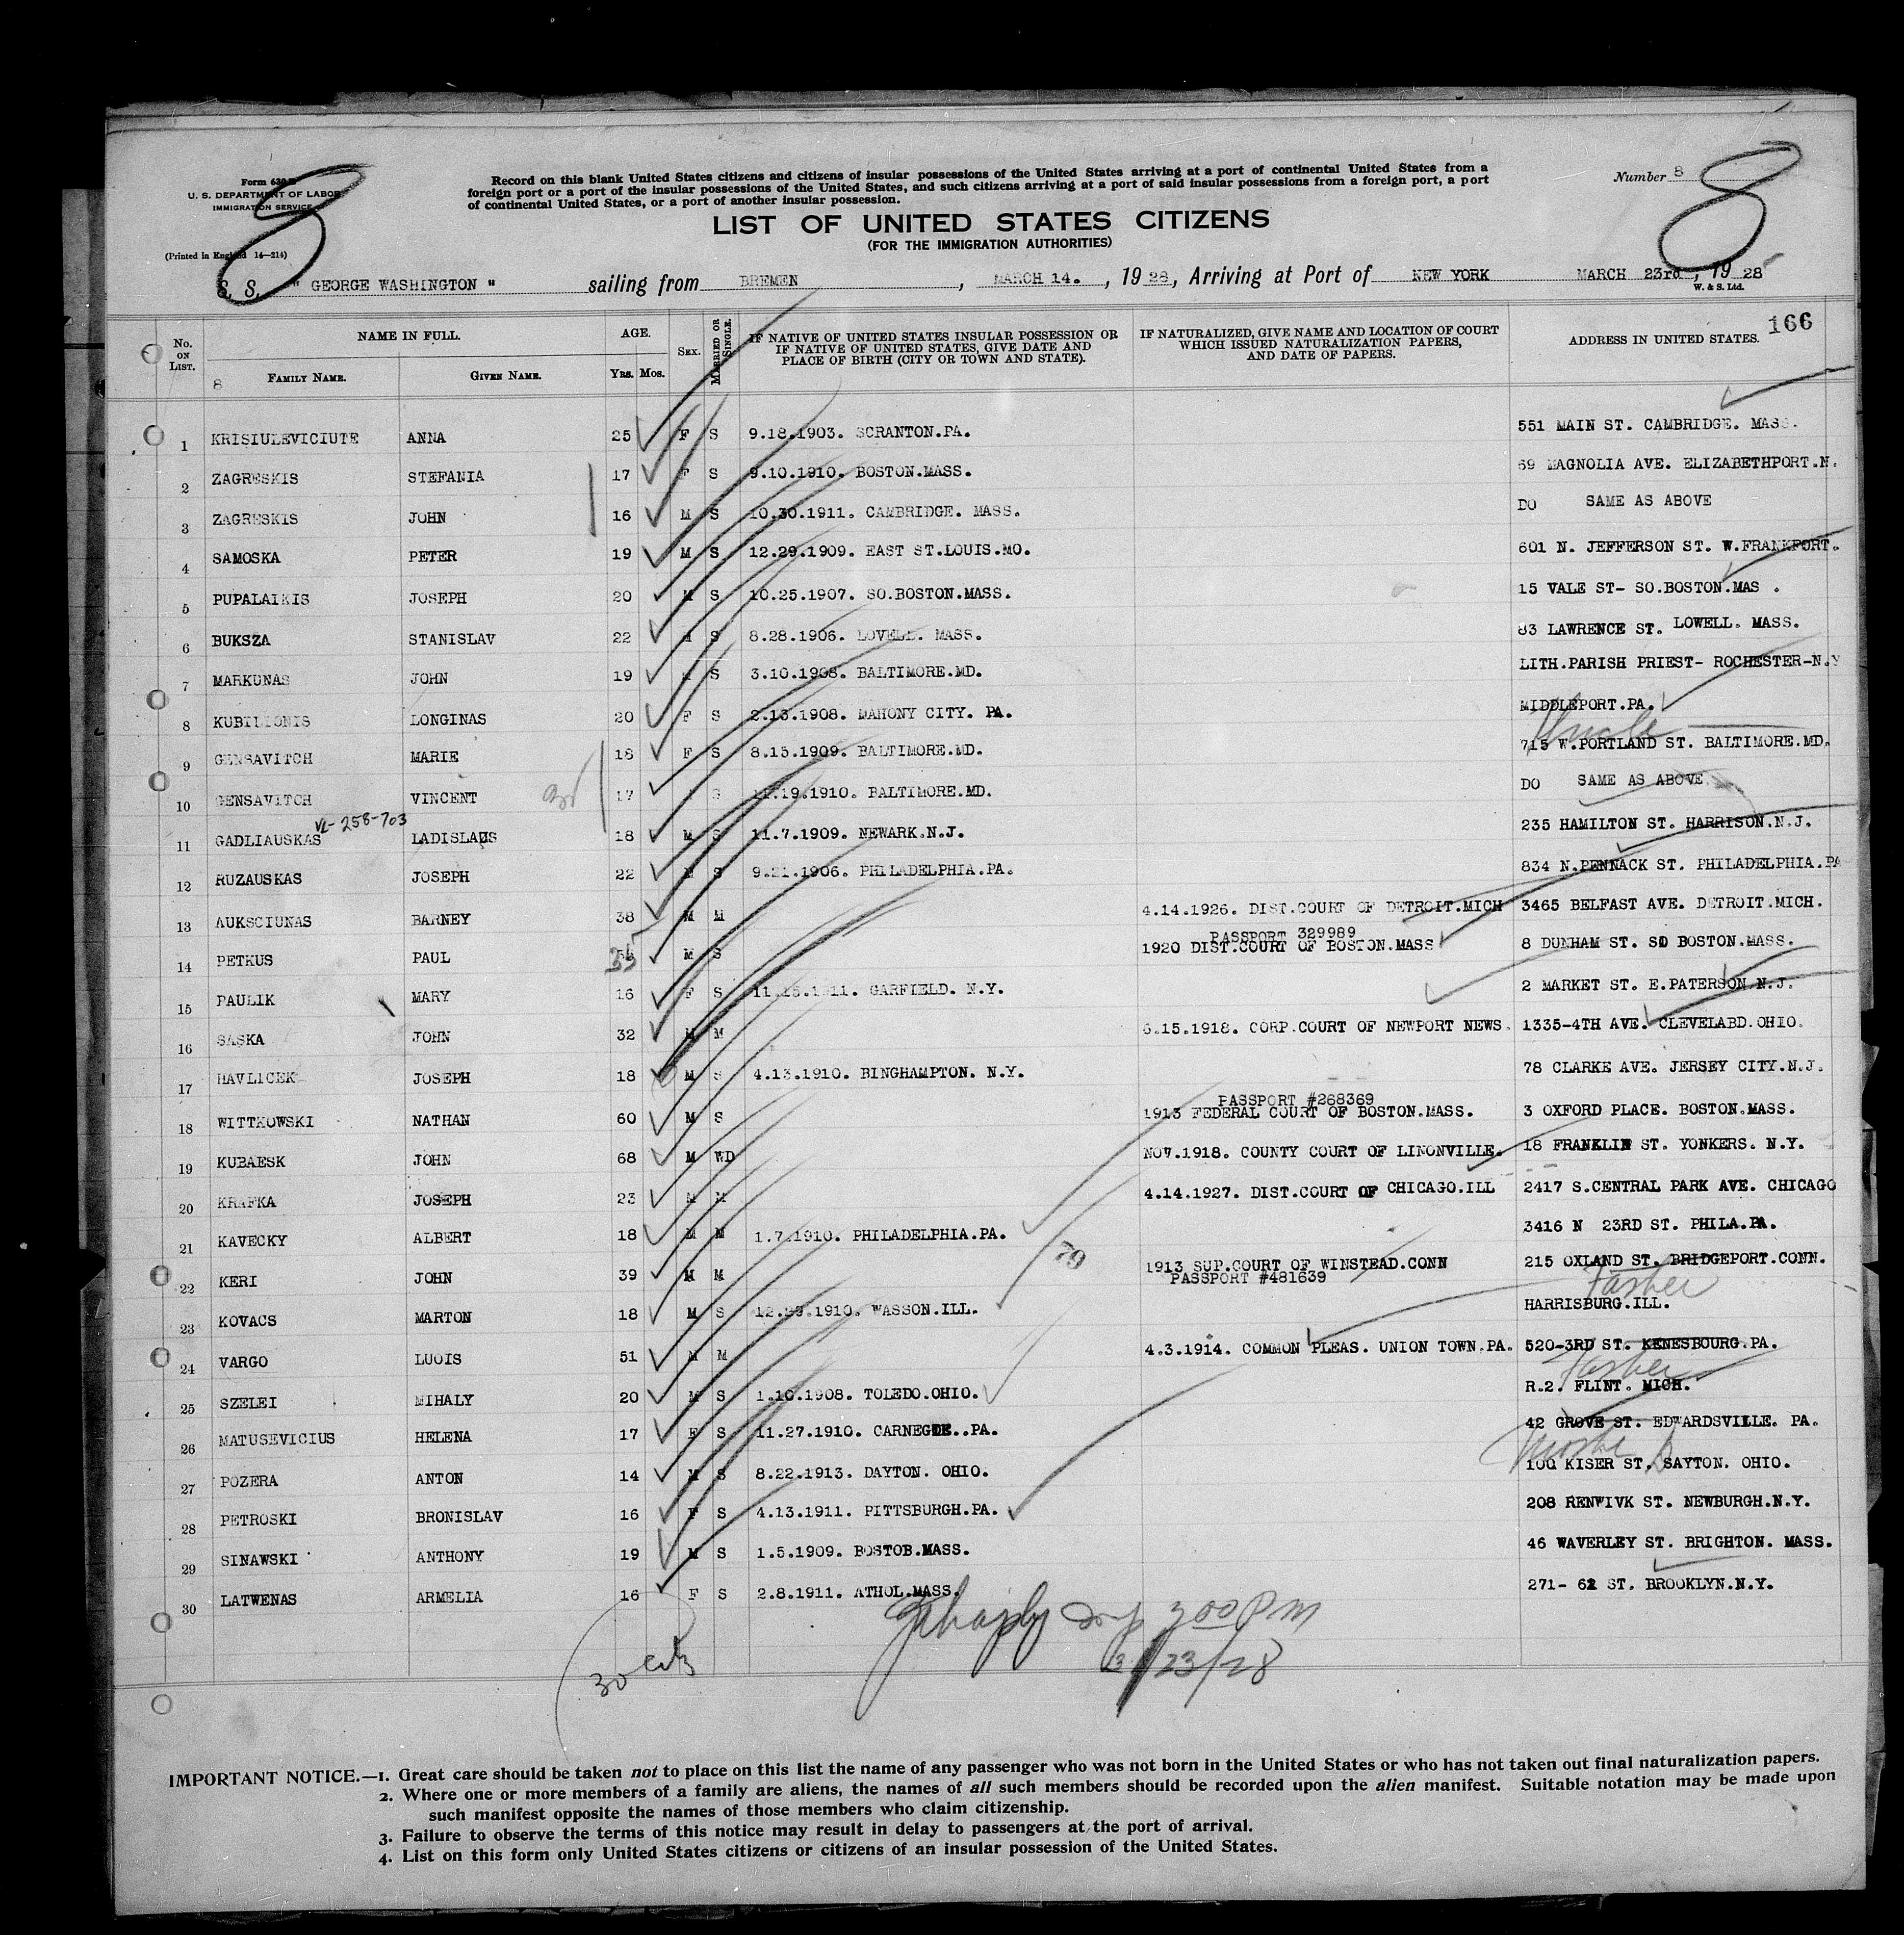 Form 630
U. S. DEPARTMENT OF LABOR
IMMIGRATION SERVICE
(Printed in England 14—214)
8
8
Number 8
Record on this blank United States citizens and citizens of insular possessions of the United States arriving at a port of continental United States from a
foreign port or a port of the insular possessions of the United States, and such citizens arriving at a port of said insular possessions from a foreign port, a port
of continental United States, or a port of another insular possession.
LIST OF UNITED STATES CITIZENS
(FOR THE IMMIGRATION AUTHORITIES)
S. S. " GEORGE WASHINGTON " sailing from BREMEN, MARCH 14., 1928, Arriving at Port of NEW YORK MARCH 23rd, 1928
W. & S. Ltd.
166
No. ON LIST. NAME IN FULL. AGE. SEX. MARRIED OR SINGLE. IF NATIVE OF UNITED STATES INSULAR POSSESSION OR IF NATIVE OF UNITED STATES, GIVE DATE AND PLACE OF BIRTH (CITY OR TOWN AND STATE). IF NATURALIZED, GIVE NAME AND LOCATION OF COURT WHICH ISSUED NATURALIZATION PAPERS, AND DATE OF PAPERS. ADDRESS IN UNITED STATES.
8 FAMILY NAME. GIVEN NAME. YRS. MOS.
1 KRISIULEVICIUTE ANNA 25 F S 9.18.1903. SCRANTON.PA. 551 MAIN ST. CAMBRIDGE. MASS.
2 ZAGRESKIS STEFANIA 17 F S 9.10.1910. BOSTON.MASS. 69 MAGNOLIA AVE. ELIZABETHPORT.N.
3 ZAGRESKIS JOHN 16 M S 10.30.1911. CAMBRIDGE. MASS. DO SAME AS ABOVE
4 SAMOSKA PETER 19 M S 12.29.1909. EAST ST.LOUIS.MO. 601 N. JEFFERSON ST. W.FRANKFORT.
5 PUPALAIKIS JOSEPH 20 M S 10.25.1907. SO.BOSTON.MASS. 15 VALE ST- SO.BOSTON.MAS .
6 BUKSZA STANISLAV 22 M S 8.28.1906. LOVELL. MASS. 83 LAWRENCE ST. LOWELL. MASS.
7 MARKUNAS JOHN 19 S 3.10.1908. BALTIMORE.MD. LITH.PARISH PRIEST- ROCHESTER-N.Y
8 KUBILIONIS LONGINAS 20 F S 2.13.1908. MAHONY CITY. PA. MIDDLEPORT.PA.
Uncle
9 GENSAVITCH MARIE 18 F S 8.15.1909. BALTIMORE.MD. 715 W.PORTLAND ST. BALTIMORE.MD.
10 GENSAVITCH VINCENT 17 S 11.19.1910. BALTIMORE.MD. DO SAME AS ABOVE
VL-258-703
11 GADLIAUSKAS LADISLAUS 18 M S 11.7.1909. NEWARK.N.J. 235 HAMILTON ST. HARRISON.N.J.
12 RUZAUSKAS JOSEPH 22 M S 9.21.1906. PHILADELPHIA.PA. 834 N.PENNACK ST. PHILADELPHIA.PA
13 AUKSCIUNAS BARNEY 38 M M 4.14.1926. DIST.COURT OF DETROIT.MICH 3465 BELFAST AVE. DETROIT.MICH.
PASSPORT 329989
14 PETKUS PAUL 35 M S 1920 DIST.COURT OF BOSTON.MASS 8 DUNHAM ST. SO BOSTON.MASS.
15 PAULIK MARY 16 F S 11.15.1911. GARFIELD. N.Y. 2 MARKET ST. E.PATERSON N.J.
16 SASKA JOHN 32 M M 6.15.1918. CORP.COURT OF NEWPORT NEWS. 1335-4TH AVE. CLEVELABD.OHIO.
17 HAVLICEK JOSEPH 18 M S 4.13.1910. BINGHAMPTON. N.Y. 78 CLARKE AVE. JERSEY CITY.N.J.
PASSPORT #268369
18 WITTKOWSKI NATHAN 60 M S 1913 FEDERAL COURT OF BOSTON.MASS. 3 OXFORD PLACE. BOSTON.MASS.
19 KUBAESK JOHN 68 M WD NOV.1918. COUNTY COURT OF LINONVILLE. 18 FRANKLIN ST. YONKERS. N.Y.
20 KRAFKA JOSEPH 23 M M 4.14.1927. DIST.COURT OF CHICAGO.ILL 2417 S.CENTRAL PARK AVE. CHICAGO
21 KAVECKY ALBERT 18 M M 1.7.1910. PHILADELPHIA.PA. 3416 N 23RD ST. PHILA.PA.
79
22 KERI JOHN 39 M M 1913 SUP.COURT OF WINSTEAD.CONN 215 OXLAND ST. BRIDGEPORT.CONN.
PASSPORT #481639
Father
23 KOVACS MARTON 18 M S 12.29.1910. WASSON.ILL. HARRISBURG.ILL.
24 VARGO LUOIS 51 M M 4.3.1914. COMMON PLEAS. UNION TOWN.PA. 520-3RD ST. KENESBOURG.PA.
Father
25 SZELEI MIHALY 20 M S 1.10.1908. TOLEDO.OHIO. R.2. FLINT. MICH.
26 MATUSEVICIUS HELENA 17 F S 11.27.1910. CARNEGIE..PA. 42 GROVE ST. EDWARDSVILLE. PA.
27 POZERA ANTON 14 M S 8.22.1913. DAYTON. OHIO. 100 KISER ST. SAYTON. OHIO.
28 PETROSKI BRONISLAV 16 F S 4.13.1911. PITTSBURGH.PA. 208 RENWIVK ST. NEWBURGH.N.Y.
29 SINAWSKI ANTHONY 19 M S 1.5.1909. BOSTOB.MASS. 46 WAVERLEY ST. BRIGHTON. MASS.
30 LATWENAS ARMELIA 16 F S 2.8.1911. ATHOL.MASS. 271- 62 ST. BROOKLYN.N.Y.
300 PM
3/23/28
30
IMPORTANT NOTICE.—1. Great care should be taken not to place on this list the name of any passenger who was not born in the United States or who has not taken out final naturalization papers.
2. Where one or more members of a family are aliens, the names of all such members should be recorded upon the alien manifest. Suitable notation may be made upon
such manifest opposite the names of those members who claim citizenship.
3. Failure to observe the terms of this notice may result in delay to passengers at the port of arrival.
4. List on this form only United States citizens or citizens of an insular possession of the United States.